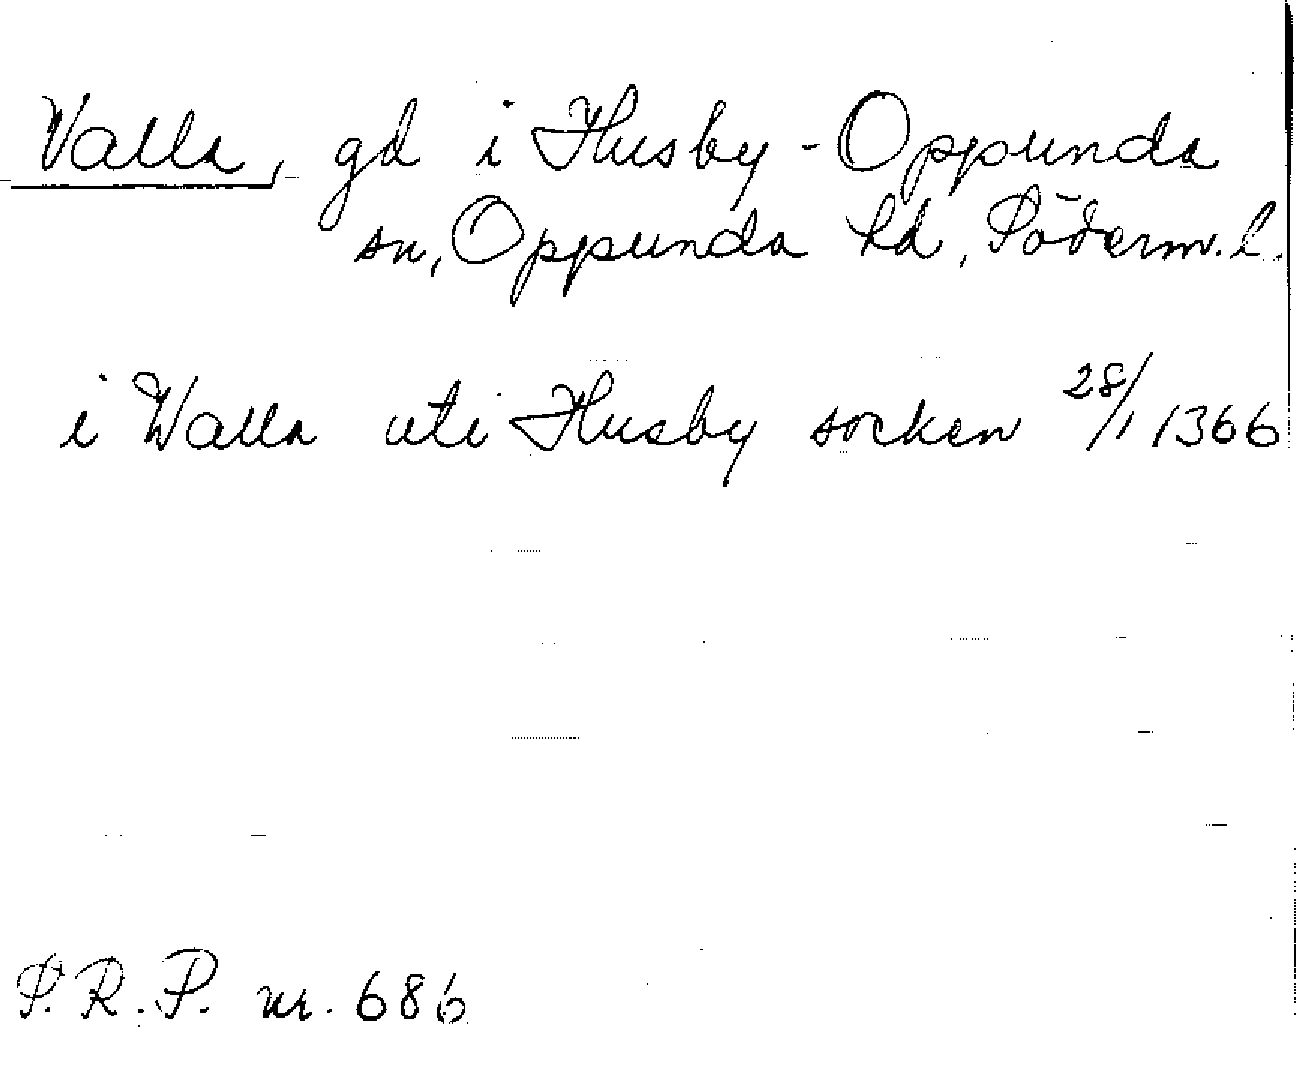 Valla, gd i Husby-Oppunda
sn, Oppunda hd, Söderm. l.
i Walla uti Husby socken 28/1 1366
S.R.P. nr. 686